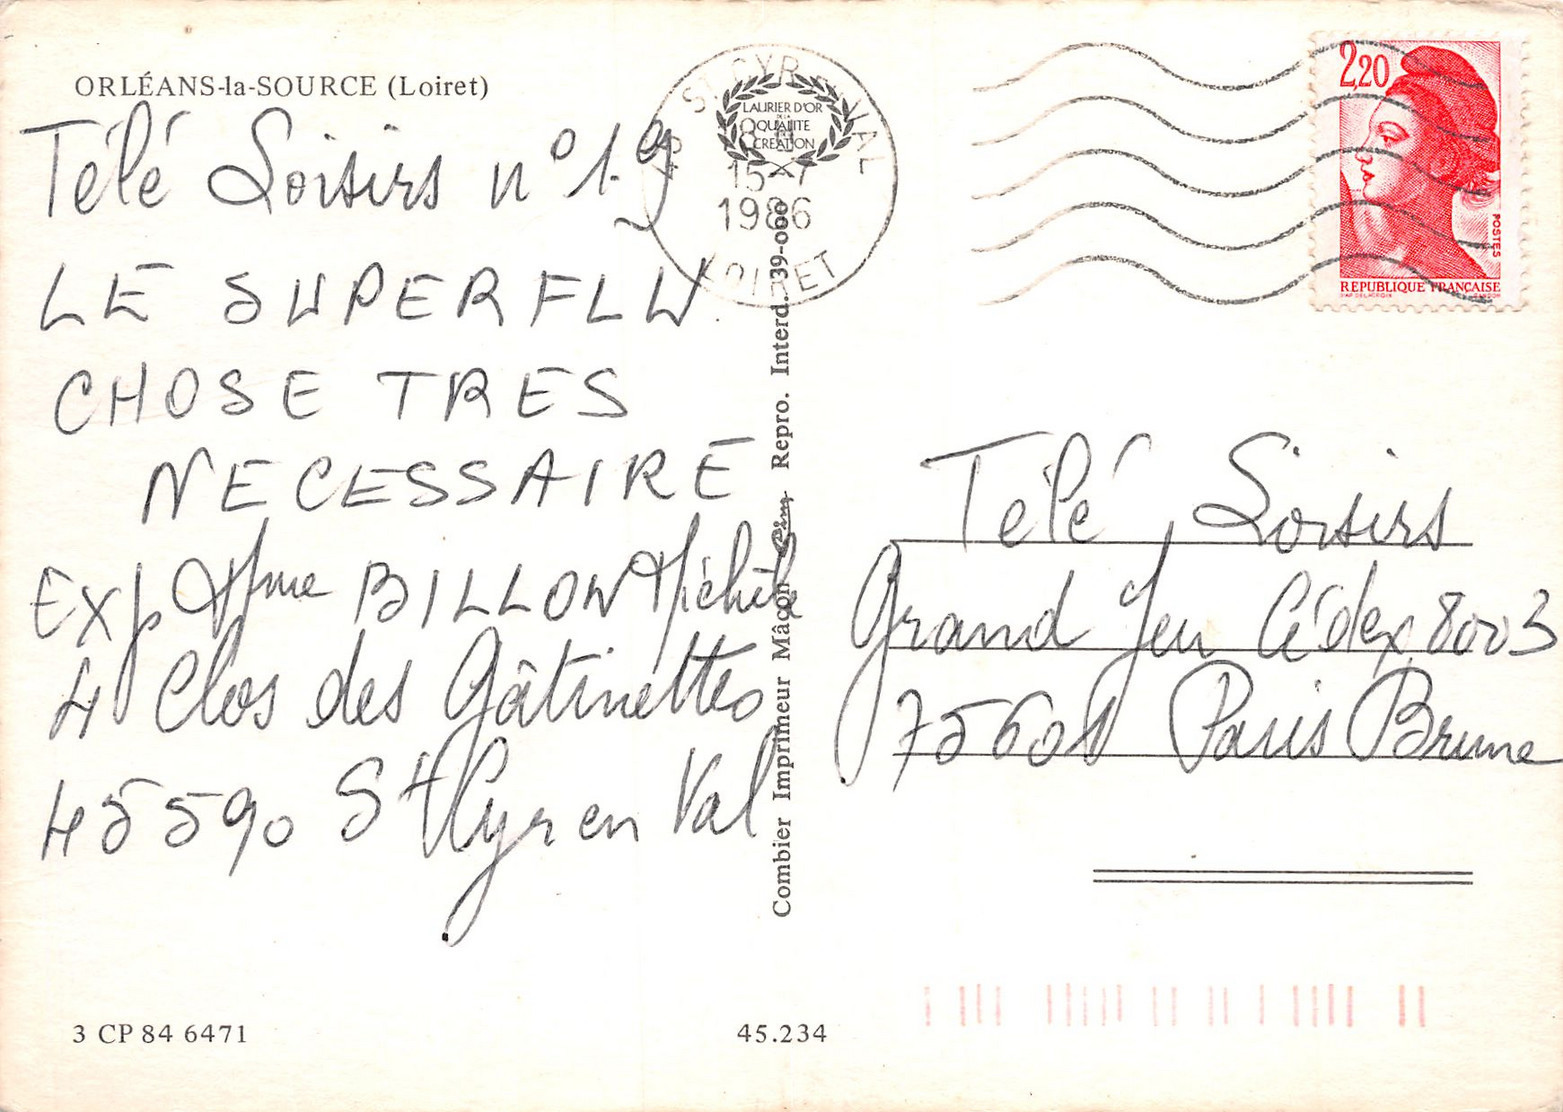 ORLÉANS-la-SOURCE (Loiret)
Télé Loisirs n° 19
LE SUPERFLU
CHOSE TRES
NECESSAIRE
Exp Mme BILLON Michèle
4 Clos des Gâtinettes
45590 St Cyr en Val
3 CP 84 6471
45.234
Combier Imprimeur Mâcon Cim Repro. Interd. 39-060
ST CYR EN VAL
LAURIER D'OR
DE LA
QUALITE
CREATION
15-7
1986
LOIRET
2,20
POSTES
REPUBLIQUE FRANÇAISE
D'AP. DELACROIX
GANDON
Télé Loisirs
Grand Jeu Cédex 8003
75601 Paris Brune